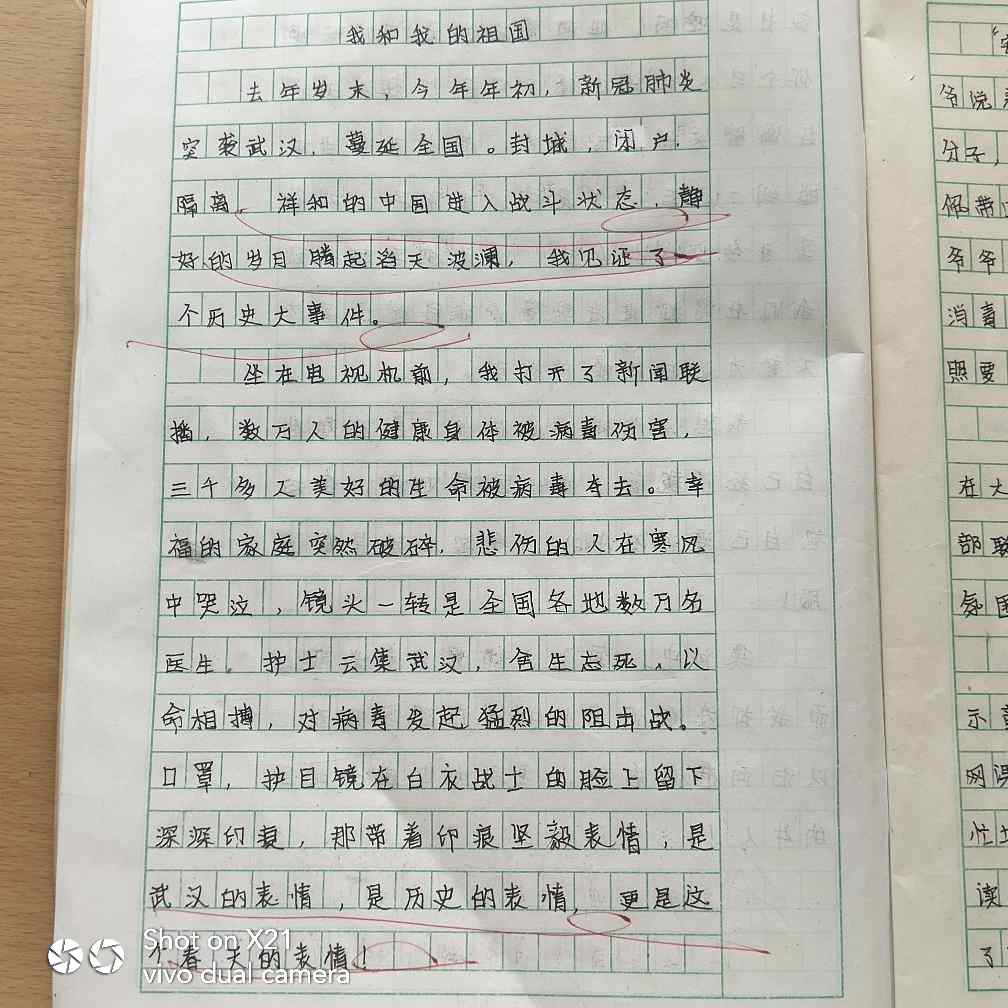 我和我的祖国
去年岁末，今年年初，新冠肺炎
突袭武汉，蔓延全国。封城，闭户，
隔离，祥和的中国进入战斗状态，静
好的岁月腾起滔天波澜，我见证了
个历史大事件。
坐在电视机前，我打开了新闻联
播，数万人的健康身体被病毒伤害，
三千多人美好的生命被病毒夺去。幸
福的家庭突然破碎，悲伤的人在寒风
中哭泣，镜头一转是全国各地数万名
医生。护士云集武汉，舍生忘死，以
命相搏，对病毒发起猛烈的阻击战。
口罩，护目镜在白衣战士的脸上留下
深深印痕，那带着印痕坚毅表情，是
武汉的表情，是历史的表情，更是这
个春天的表情！
爷说
分子，
佩带
爷爷
消毒
照要
在大
部联
氛围
示
网课
忙
读
了
Shot on X21
vivo dual camera